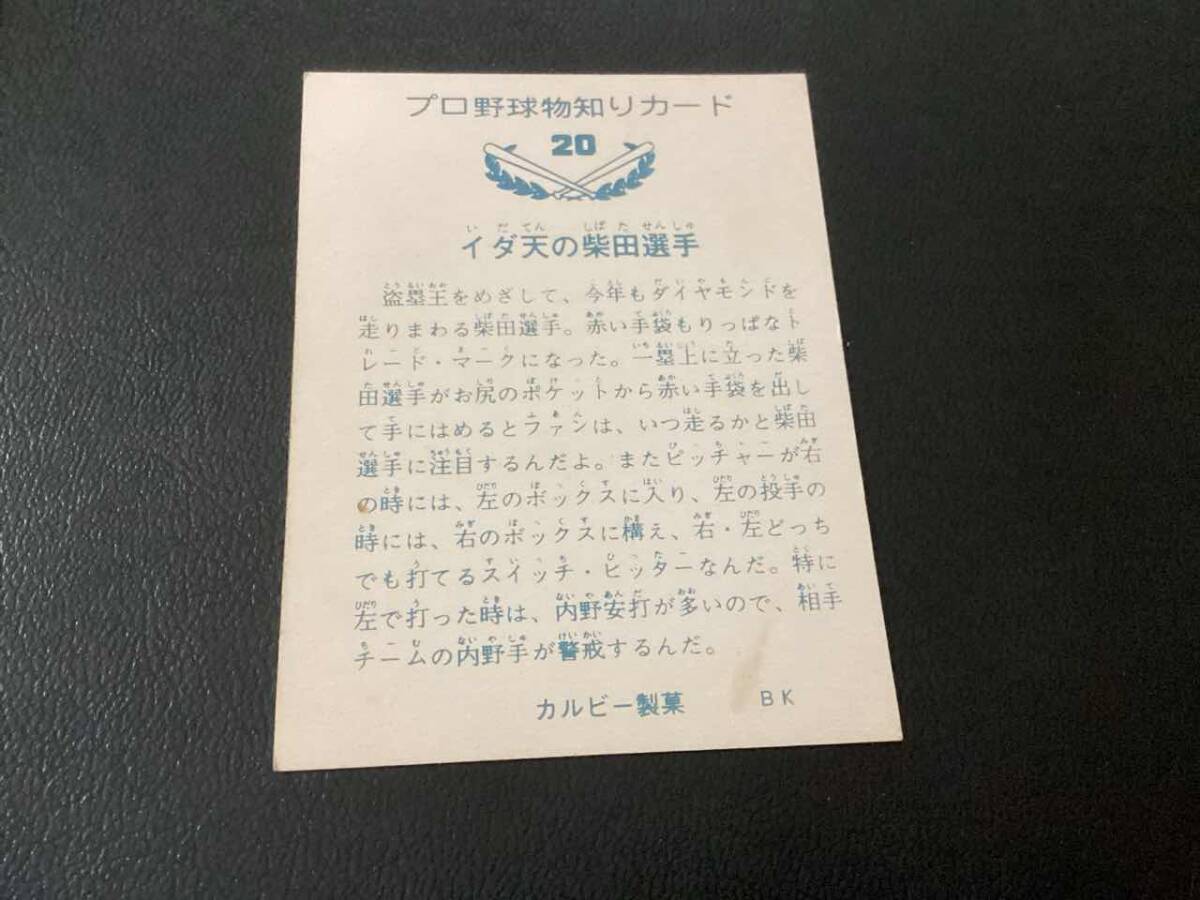 プロ野球物知りカード
20
イダ天の柴田選手
盗塁王をめざして、今年もダイヤモンドを
走りまわる柴田選手。赤い手袋もりっぱなト
レード・マークになった。一塁上に立った柴
田選手がお尻のポケットから赤い手袋を出し
て手にはめるとファンは、いつ走るかと柴田
選手に注目するんだよ。またピッチャーが右
の時には、左のボックスに入り、左の投手の
時には、右のボックスに構え、右・左どっち
でも打てるスイッチ・ヒッターなんだ。特に
左で打った時は、内野安打が多いので、相手
チームの内野手が警戒するんだ。
カルビー製菓 BK